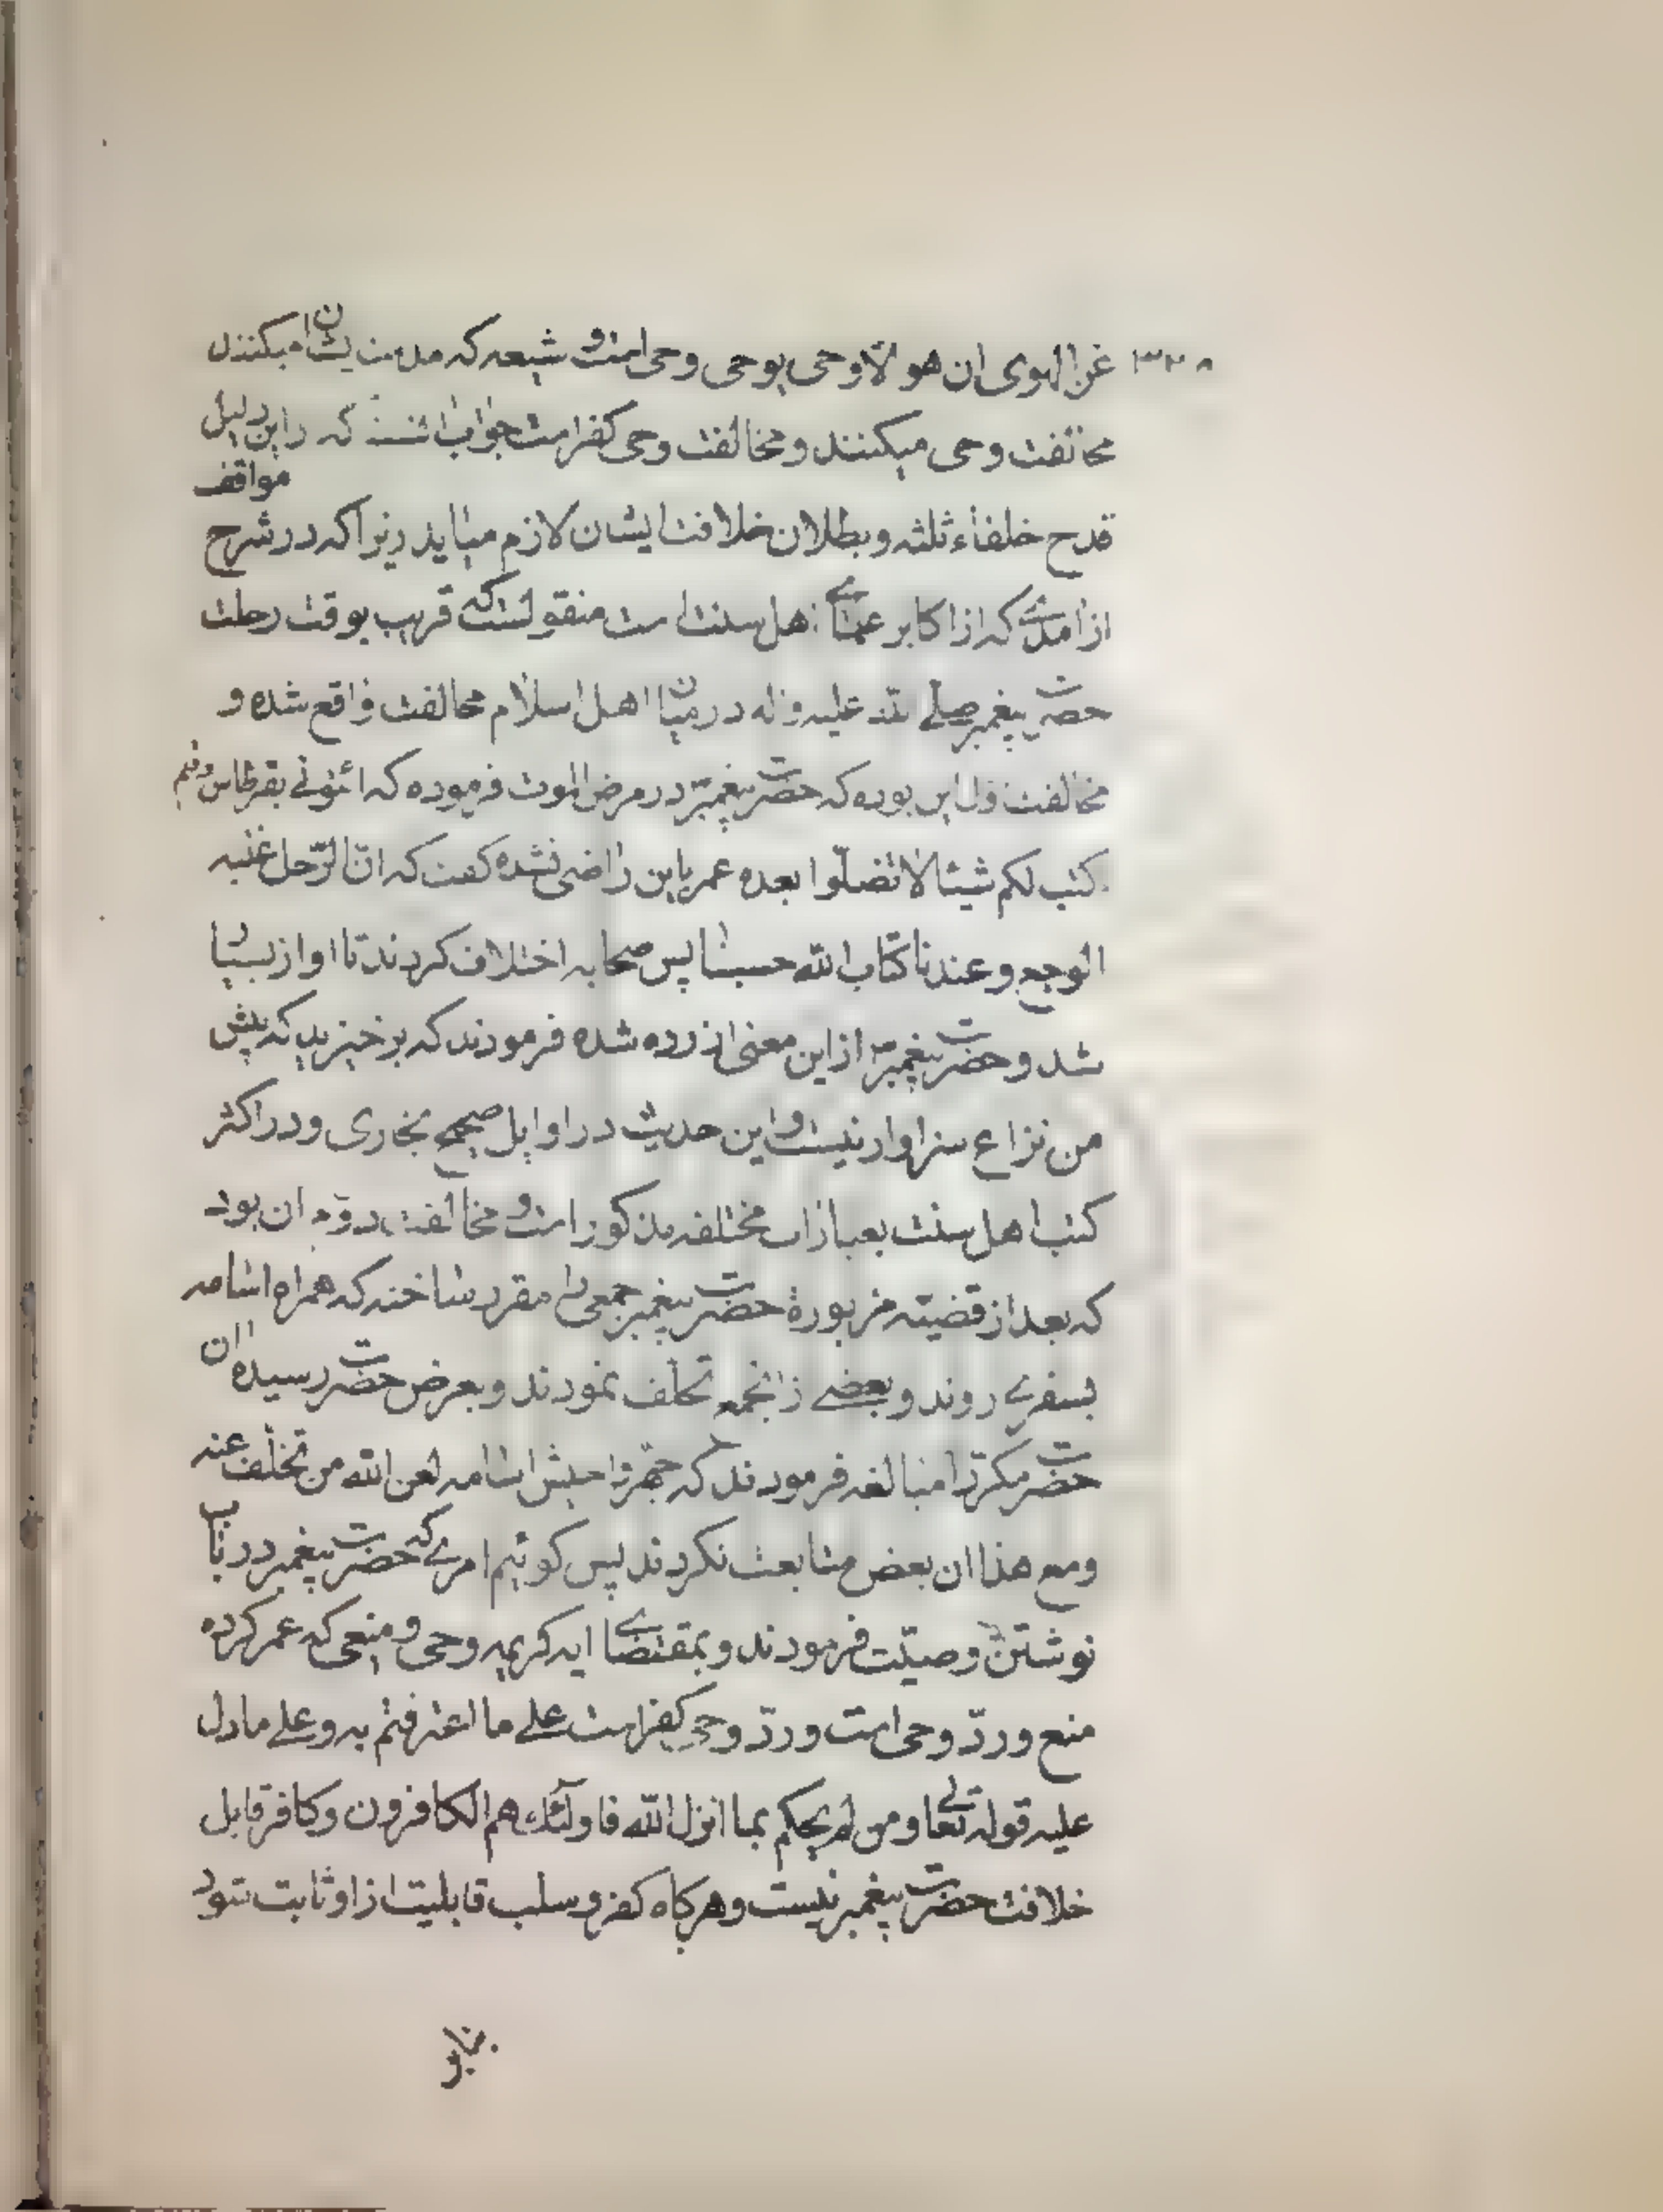 ۳۲۸ عن الهوی ان هو الّا وحی یوحی وحی است و شیعه که مذمت ایشان میکنند
مخالفت وحی میکنند و مخالفت وحی کفر است جواب انست که این دلیل
قدح خلفاء ثلثه و بطلان خلافت ایشان لازم میاید زیرا که در شرح مواقف
از امدی که از اکابر علمای اهل سنت است منقولست که قریب بوقت رحلت
حضرت پیغمبر صلی الله علیه واله در میان اهل اسلام مخالفت واقع شده و
مخالفت اول این بوده که حضرت پیغمبر در مرض الموت فرموده که ائتونی بقرطاس وقلم
اکتب لکم شیئا لا تضلّوا بعده عمر باین راضی نشده کفت که انّ الرّجل غلبه
الوجع و عندنا کتاب الله حسبنا پس صحابه اختلاف کردند تا اواز بسیار
شد و حضرت پیغمبر از این معنی ازرده شده فرمودند که برخیزید که پیش
من نزاع سزاوار نیست و این حدیث در اوایل صحیح بخاری و در اکثر
کتب اهل سنت بعبارات مختلفه مذکور است و مخالفت دوّم ان بود
که بعد از قضیّه مزبوره حضرت پیغمبر جمعی را مقرر ساختند که همراه اسامه
بسفری روند و بعضی از انجمع تخلف نمودند و بعرض حضرت رسیده ان
حضرت مکرّرا مبالغه فرمودند که جهّزوا جیش اسامه لعن الله من تخلّف عنه
و مع هذا ان بعض متابعت نکردند پس کوئیم امری که حضرت پیغمبر در باب
نوشتن وصیّت فرمودند و بمقتضای ایه کریمه وحی و منعی که عمر کرده
منع و ردّ وحی است و ردّ وحی کفر است علی ما اعترفتم به و علی ما دل
علیه قوله تعالی و من لم یحکم بما انزل الله فاولئک هم الکافرون و کافر قابل
خلافت حضرت پیغمبر نیست و هرکاه کفر و سلب قابلیت از او ثابت شود
بنابر